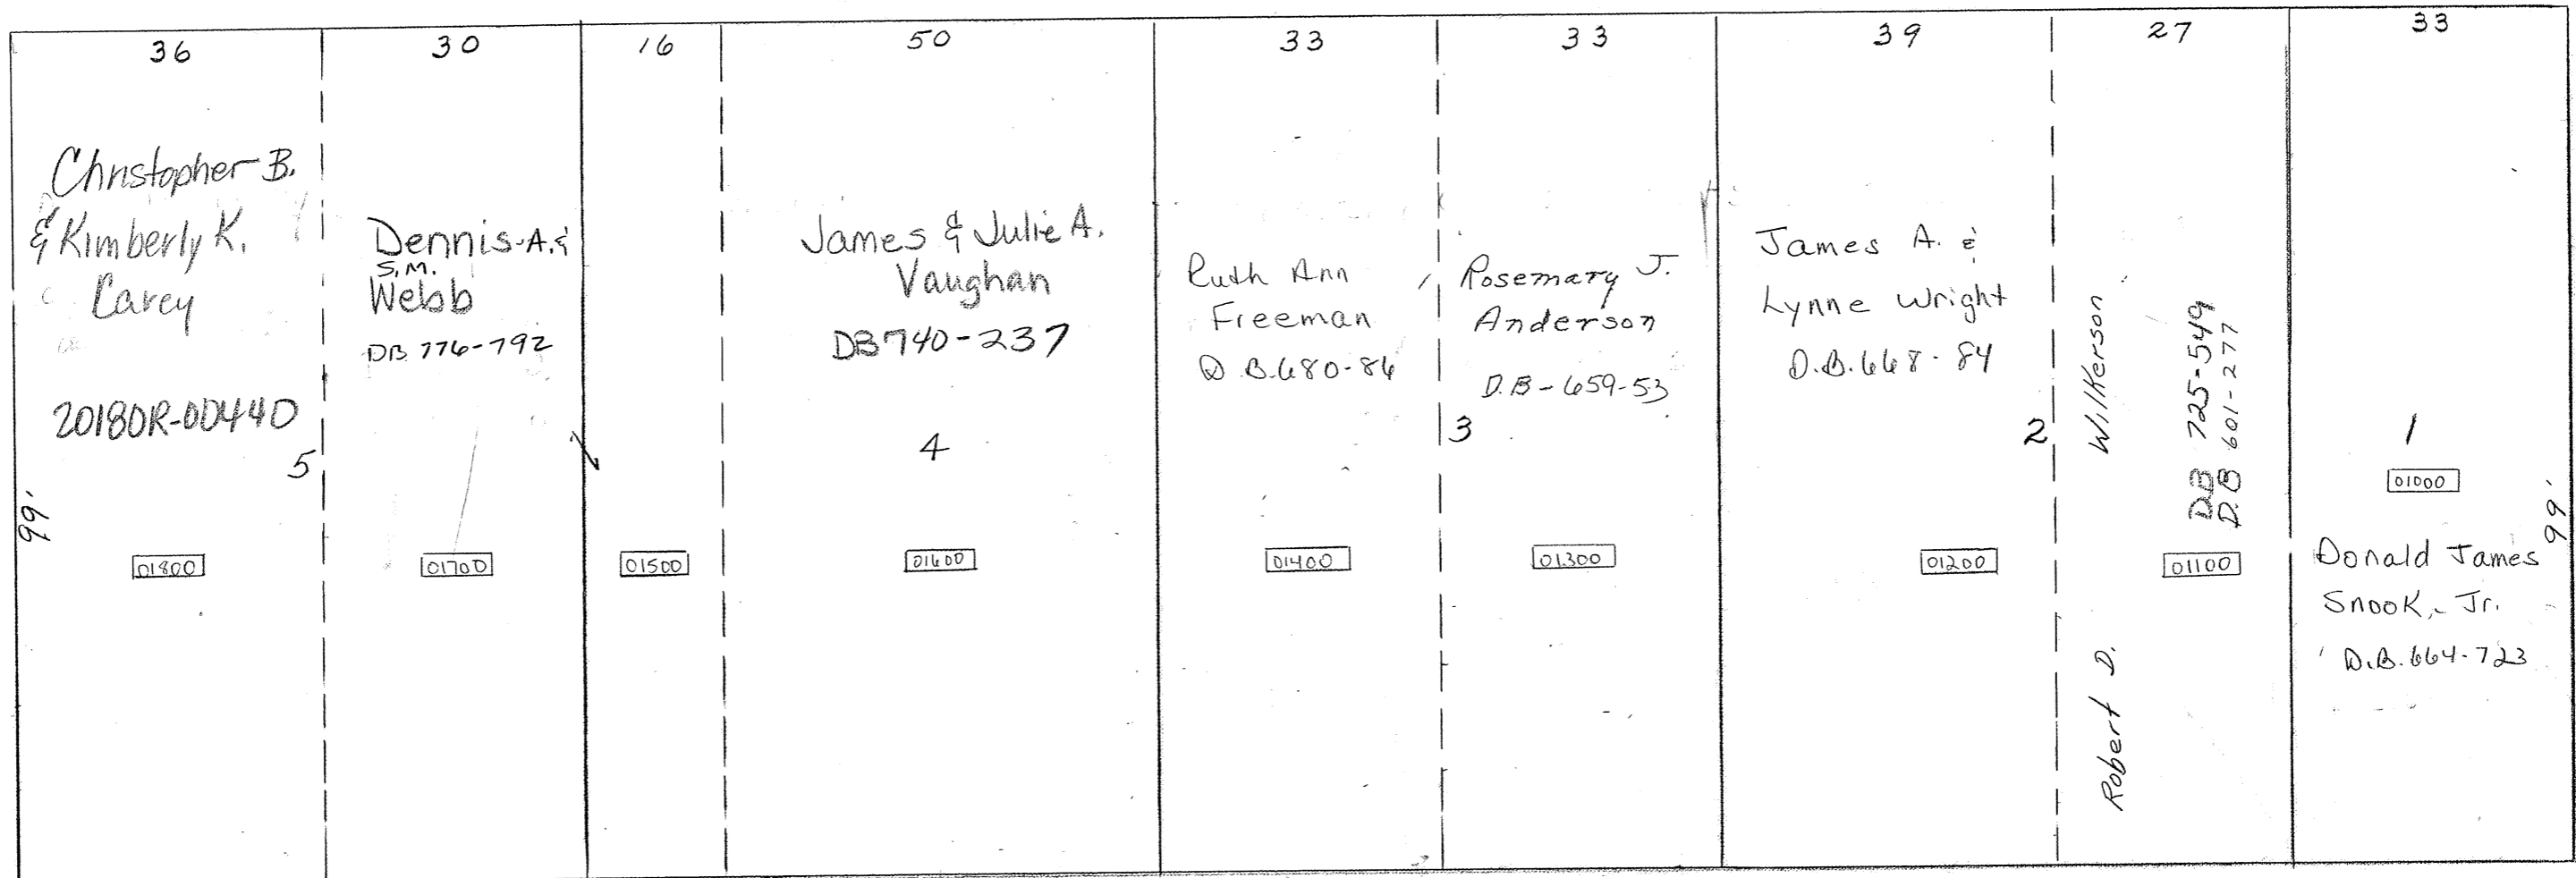 36
30
16
50
33
33
39
27
33
Christopher B.
& Kimberly K.
Carey
20180R-00440
5
99'
01800
Dennis A. &
S.M.
Webb
DB 776-792
01700
01500
James & Julie A.
Vaughan
DB 740-237
4
01600
Ruth Ann
Freeman
D.B. 680-86
01400
Rosemary J.
Anderson
D.B-659-53
3
01300
James A. &
Lynne Wright
D.B. 668-84
2
01200
Robert D. Wilkerson
DB 725-549
D.B 601-277
01100
1
01000
Donald James
Snook, Jr.
D.B. 664-723
99'